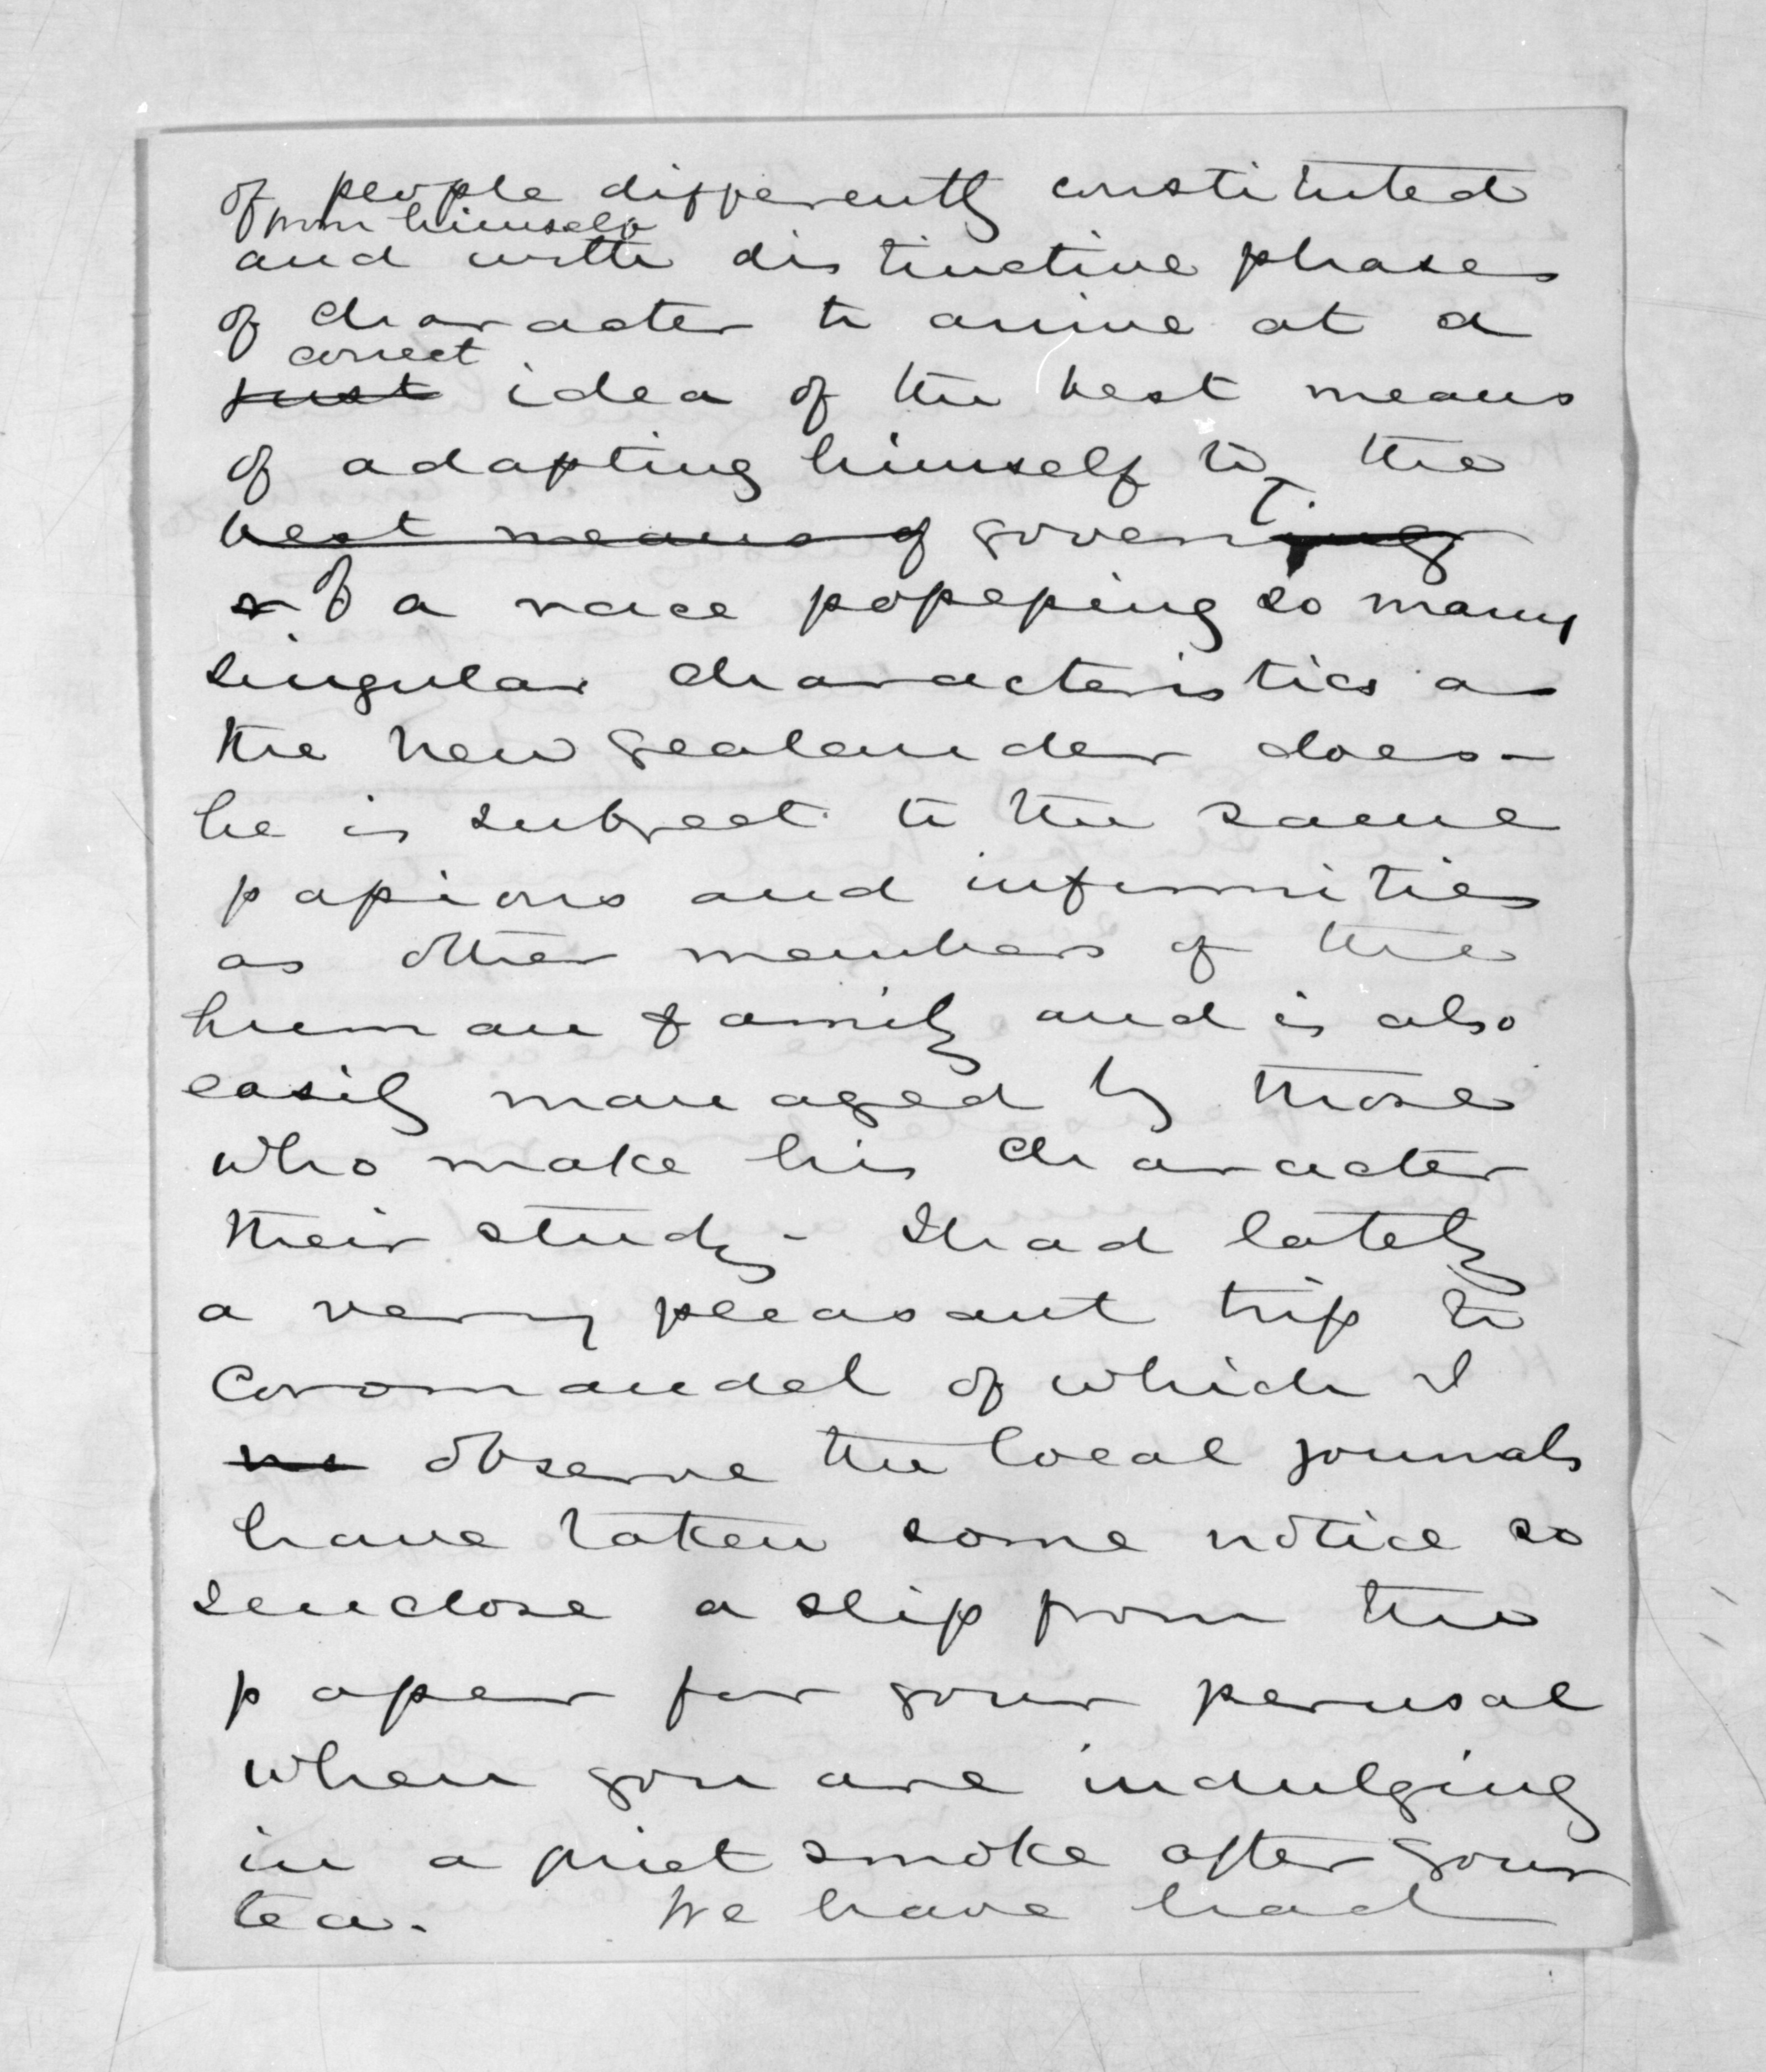 of people differently constituted
from himself
and with distinctive phases
of character to arrive at a
correct
just idea of the best means
of adapting himself to the
best means of govern
or of a race possessing so many
singular characteristics as
the New Zealander does -
he is subject to the same
passions and infirmities
as other members of the
human family and is also
easily managed by those
who make his character
their study - I had lately
a very pleasant trip to
Coromandel of which I
observe the local journals
have taken some notice so
I enclose a slip from the
paper for your perusal
when you are indulging
in a quiet smoke after your
tea. We have had